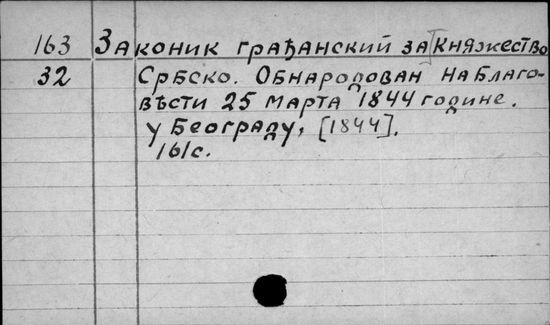 163 Законик грађански за Княжество
32 Србско. Обнародован на Благо-
вѣсти 25 марта 1844 године.
у Београду, [1844].
161с.